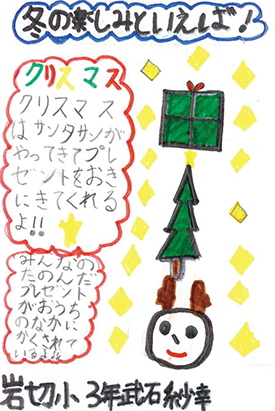 冬の楽しみといえば!
クリスマス
クリスマス
はサンタサンが
やってきてプレ
ゼントをおき
にきてくれる
よ!!
みんなの
たのんだ
プレゼント
がおうち
のなかに
かくされて
いるよ!!
岩切小 3年武石紗幸